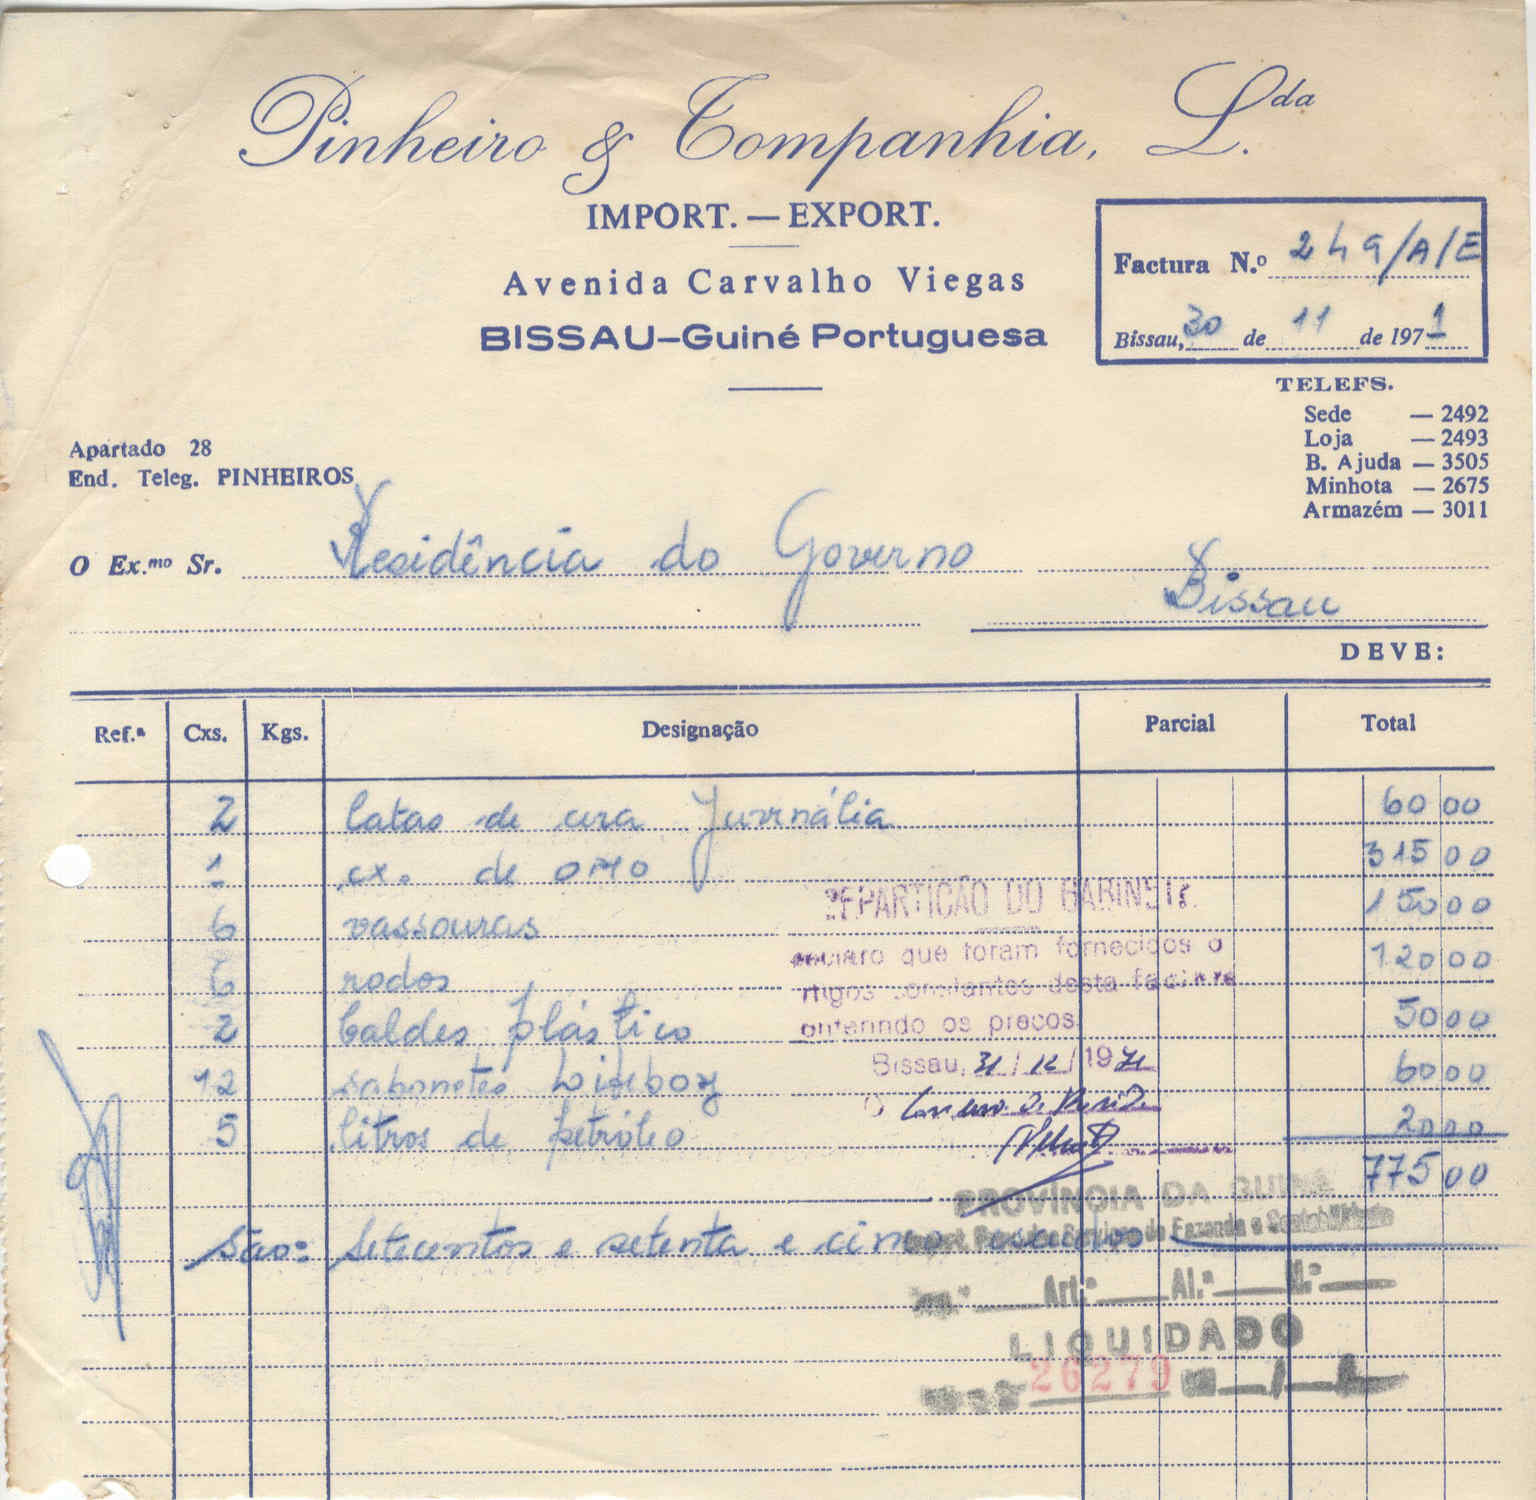 Pinheiro & Companhia, L.da
IMPORT. — EXPORT.
Avenida Carvalho Viegas
BISSAU–Guiné Portuguesa
Factura N.º 249/A/E
Bissau, 30 de 11 de 1971
TELEFS.
Sede — 2492
Loja — 2493
B. Ajuda — 3505
Minhota — 2675
Armazém — 3011
Apartado 28
End. Teleg. PINHEIROS
O Ex.mo Sr. Residência do Governo
Bissau
DEVE:
Ref.ª Cxs. Kgs. Designação Parcial Total
2 latas de cera 60 00
1 cx. de OMO 315 00
6 vassouras 150 00
6 rodos 120 00
2 baldes plástico 50 00
12 sabonetes Lifeboy 60 00
5 litros de petróleo 20 00
775 00
São: Setecentos e setenta e cinco escudos
REPARTIÇÃO DO GABINETE
que foram fornecidos o
constantes desta
os preços
Bissau, 31/12/1971
O
PROVÍNCIA DA GUINÉ
Fazenda e Contabilidade
Art.º Al.ª N.º
LIQUIDADO
26279